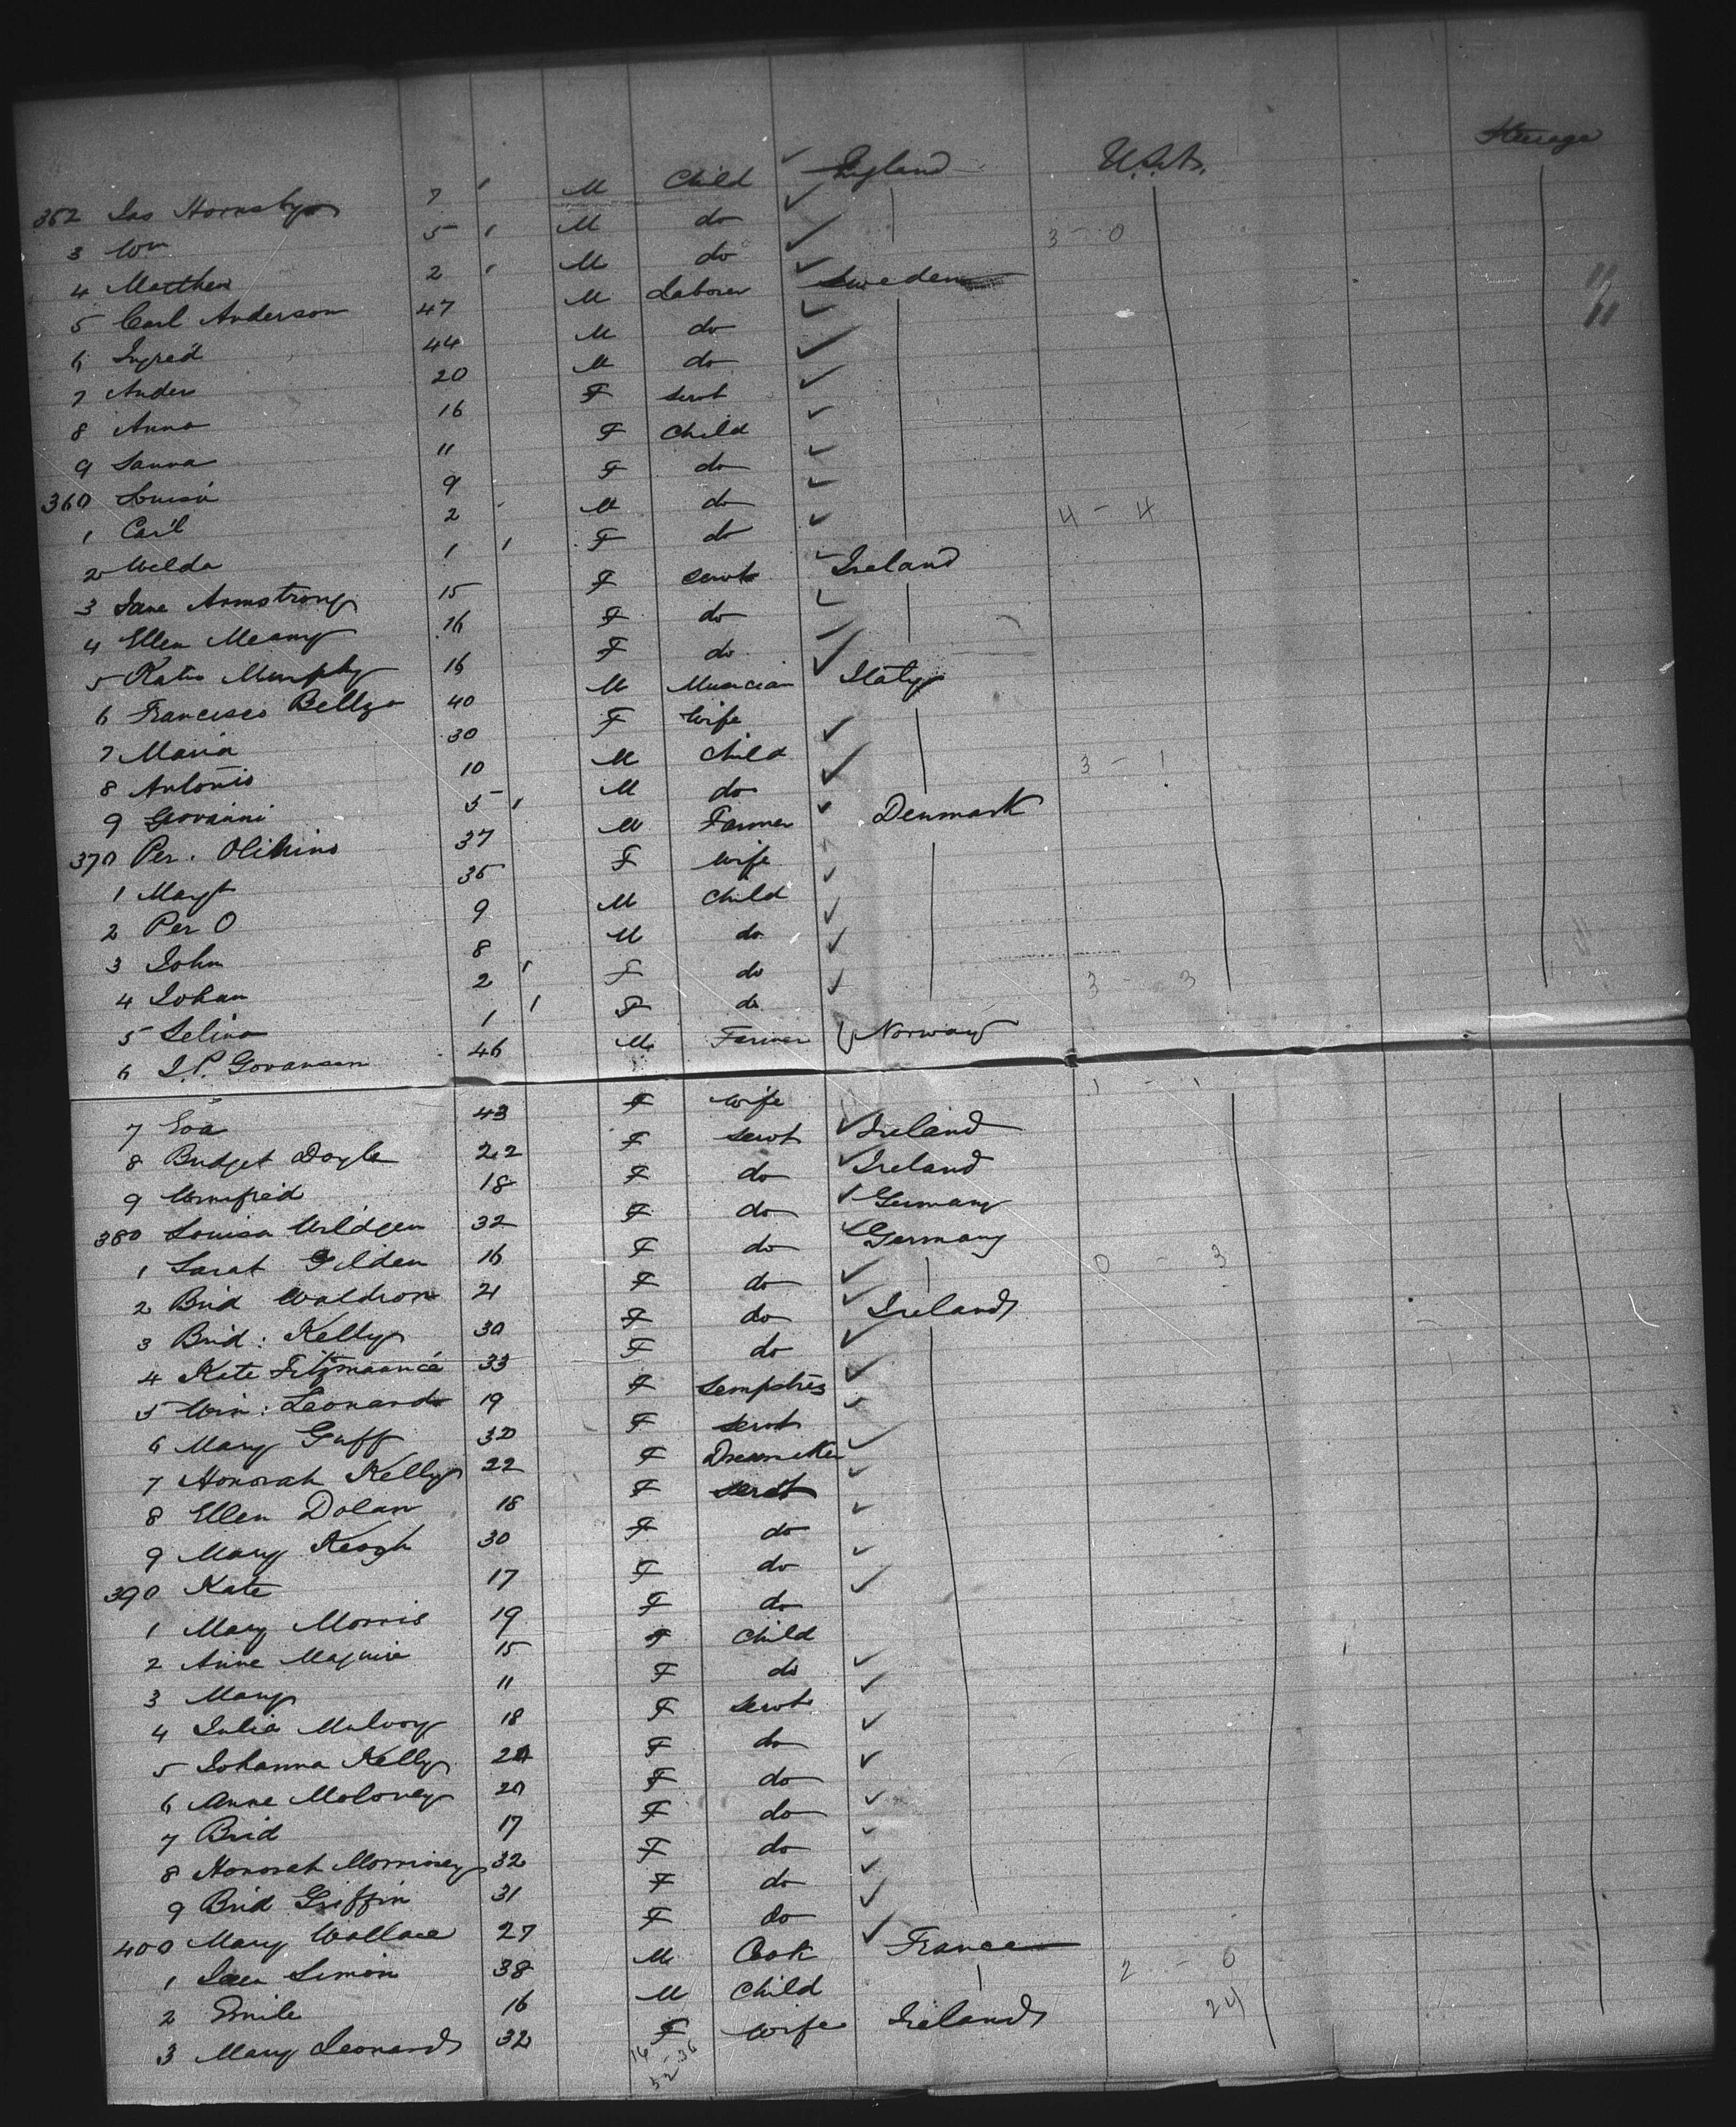 Steerage
352 Jas Hornsby 7 ' M Child ✓ England U.S.A.
3 Wm 5 ' M do ✓ 3 - 0
4 Matthew 2 ' M do ✓
5 Carl Anderson 47 M Laborer ✓ Sweden
6 Ingred 44 M do ✓
7 Anders 20 M do ✓
8 Anna 16 F Servt ✓
9 Sanna 11 F Child ✓
360 Louisa 9 F do ✓
1 Carl 2 M do ✓ 4 - 4
2 Welda 1 ' F do ✓
3 Jane Armstrong 15 F Servt ✓ Ireland
4 Ellen Meany 16 F do ✓
5 Katie Murphy 16 F do ✓
6 Francisco Bellzo 40 M Musician ✓ Italy
7 Maria 30 F Wife
8 Antonio 10 M Child ✓ 3 - 1
9 Giovanni 5 ' M do ✓
370 Per. 37 M Farmer ✓ Denmark
1 Margt 35 F Wife
2 Per O 9 M Child ✓
3 John 8 M do ✓
4 Johan 2 ' F do ✓ 3 - 3
5 Selina 1 ' F do ✓
6 J.P. Goransen 46 M Farmer Norway
7 Eva 43 F Wife 1 - 1
8 Bridget Doyle 22 F Servt ✓ Ireland
9 Winnifred 18 F do ✓ Ireland
380 Louisa Wildgen 32 F do ✓ Germany
1 Sarah Gilden 16 F do ✓ Germany 0 - 3
2 Brid Waldron 21 F do ✓
3 Brid: Kelly 30 F do ✓ Ireland
4 Kate Fitzmaurice 33 F do ✓
5 Win: Leonard 19 F Sempstres ✓
6 Mary Guff 30 F Servt ✓
7 Honorah Kelly 22 F Dressmaker ✓
8 Ellen Dolan 18 F Servt ✓
9 Mary Keogh 30 F do ✓
390 Kate 17 F do ✓
1 Mary Morris 19 F do ✓
2 Anne Maguire 15 F Child
3 Mary 11 F do ✓
4 Julia Mulvoy 18 F Servt ✓
5 Johanna Kelly 20 F do ✓
6 Anne Moloney 20 F do ✓
7 Brid 17 F do ✓
8 Honorah Morrissey 32 F do ✓
9 Brid Griffin 31 F do ✓
400 Mary Wallace 27 F do ✓
1 Jean Simon 38 M Cook ✓ France
2 Emile 16 M Child 2 - 0
3 Mary Leonard 32 F Wife Ireland 24
16 - 36
52